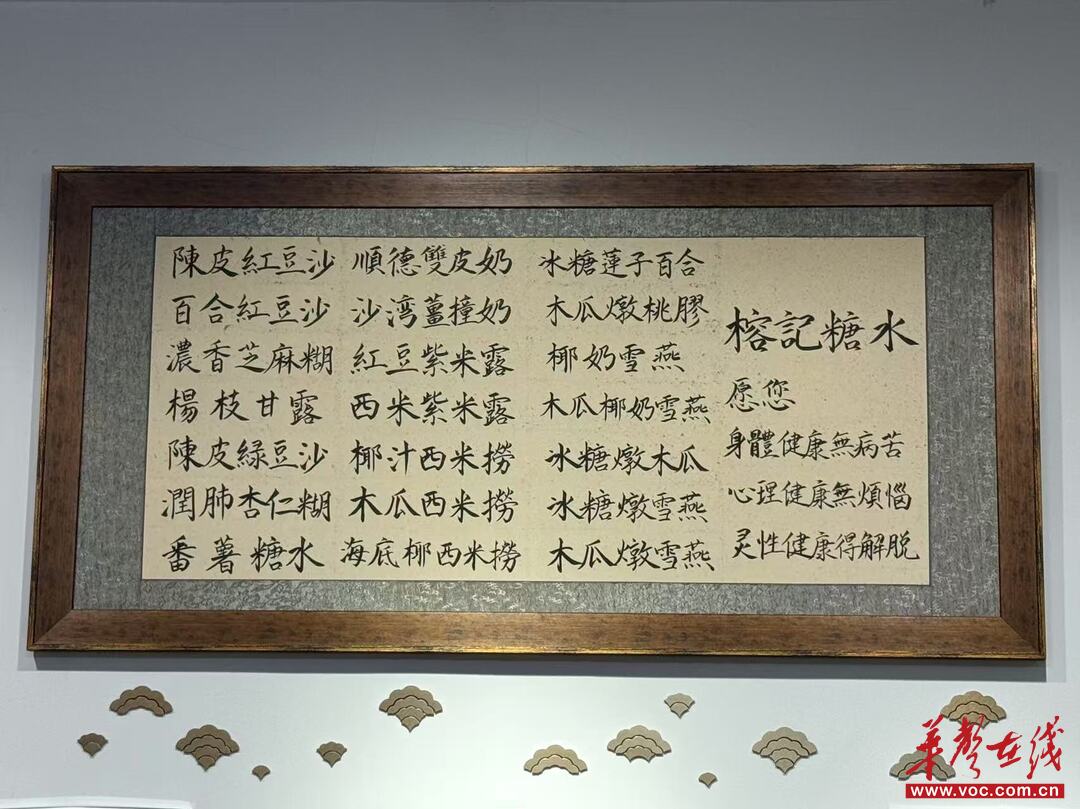 陳皮紅豆沙
百合紅豆沙
濃香芝麻糊
楊枝甘露
陳皮綠豆沙
潤肺杏仁糊
番薯糖水
順德雙皮奶
沙湾薑撞奶
紅豆紫米露
西米紫米露
椰汁西米撈
木瓜西米撈
海底椰西米撈
冰糖蓮子百合
木瓜燉桃膠
椰奶雪燕
木瓜椰奶雪燕
冰糖燉木瓜
冰糖燉雪燕
木瓜燉雪燕
榕記糖水
愿您
身體健康無病苦
心理健康無煩惱
灵性健康得解脱
华声在线
www.voc.com.cn